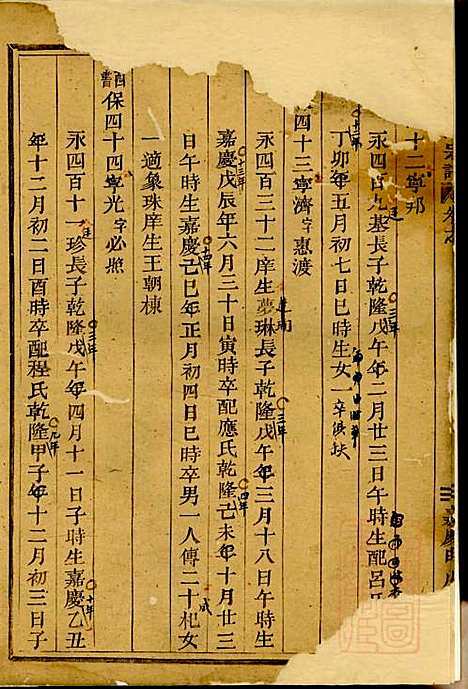 十二寧邦
永四百九基長子乾隆戊午年二月廿三日午時生配呂氏
丁卯年五月初七日巳時生女一
四十三寧濟字惠渡
永四百三十二庠生夢琳長子乾隆戊午年三月十八日午時生
嘉慶戊辰年六月三十日寅時卒配應氏乾隆己未年十月廿三
日午時生嘉慶己巳年正月初四日巳時卒男一人傳二十杞女
一適象珠庠生王朝棟
保四十四寧光字必照
永四百十一珍長子乾隆戊午年四月十一日子時生嘉慶乙丑
年十二月初二日酉時卒配程氏乾隆甲子年十二月初三日子